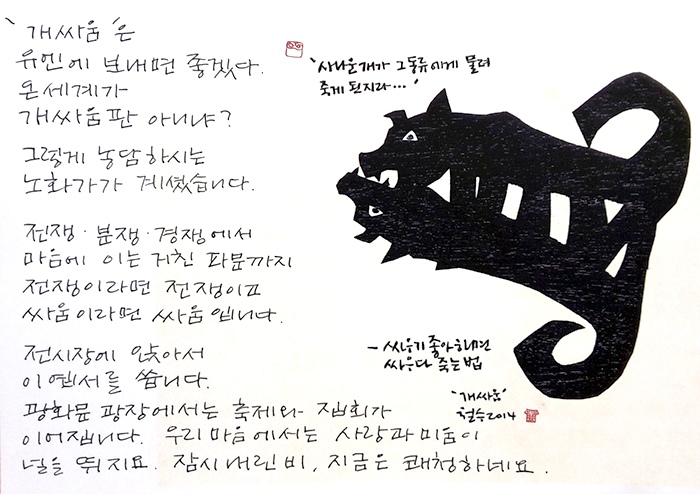 '개싸움'은
유엔에 보내면 좋겠다.
온 세계가
개싸움판 아니냐?
그렇게 농담하시는
노화가가 계셨습니다.
전쟁·분쟁·경쟁에서
마음에 이는 거친 파문까지
전쟁이라면 전쟁이고
싸움이라면 싸움입니다.
전시장에 앉아서
이 엽서를 씁니다.
광화문 광장에서는 축제와 집회가
이어집니다. 우리 마음에서는 사랑과 미움이
널을 뛰지요. 잠시 내린 비, 지금은 쾌청하네요.
'사나운개가 그동류에게 물려
죽게 된지라…'
- 싸우기 좋아하면
싸우다 죽는 법
'개싸움'
철수2014